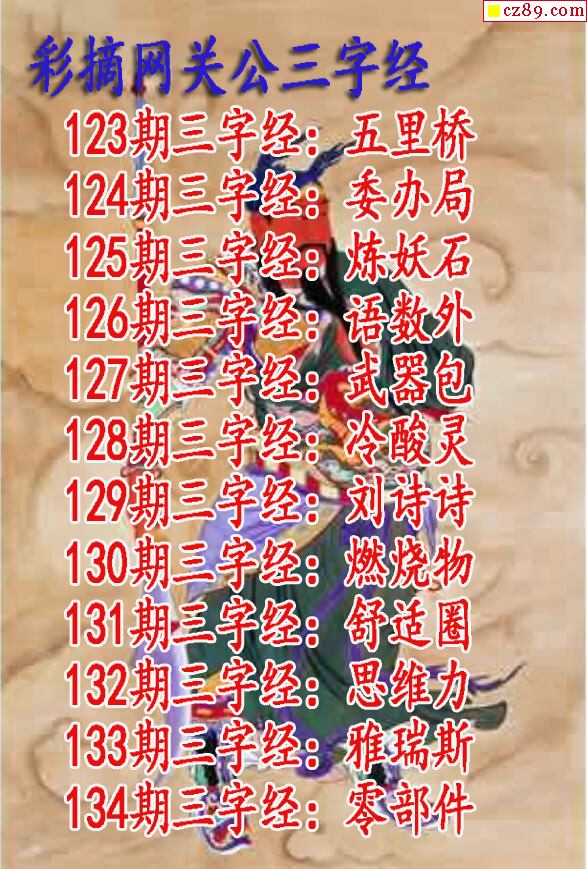 cz89.com
彩摘网关公三字经
123期三字经：五里桥
124期三字经：委办局
125期三字经：炼妖石
126期三字经：语数外
127期三字经：武器包
128期三字经：冷酸灵
129期三字经：刘诗诗
130期三字经：燃烧物
131期三字经：舒适圈
132期三字经：思维力
133期三字经：雅瑞斯
134期三字经：零部件